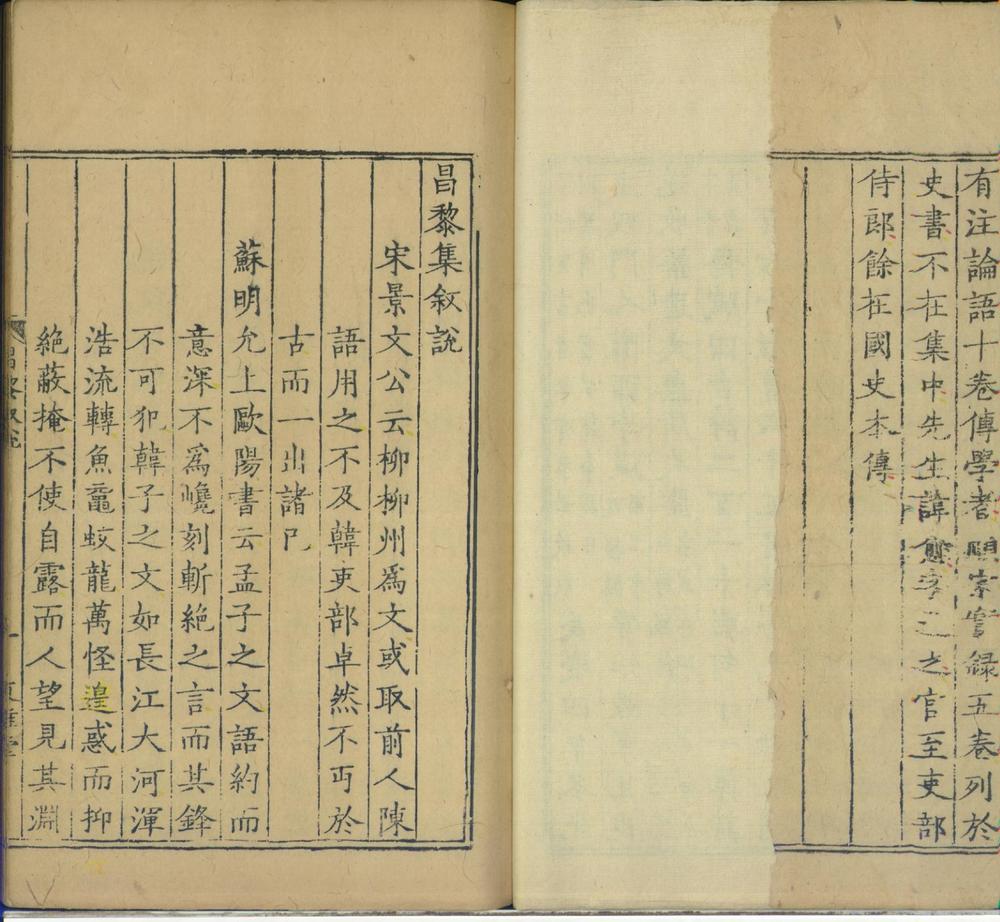 有注論語十卷傳學者順宗實録五卷列於
史書不在集中先生諱愈字退之官至吏部
侍郎餘在國史本傳
昌黎集敘說
宋景文公云柳柳州爲文或取前人陳
語用之不及韓吏部卓然不丐於
古而一出諸己
蘇明允上歐陽書云孟子之文語約而
意深不爲巉刻斬絶之言而其鋒
不可犯韓子之文如長江大河渾
浩流轉魚黿蛟龍萬怪遑惑而抑
絶蔽掩不使自露而人望見其淵
昌黎敘說
一